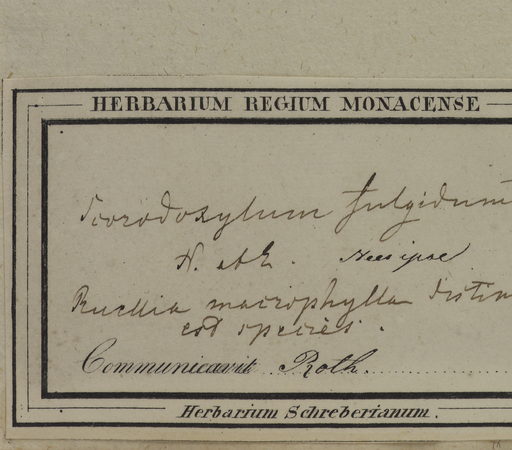 HERBARIUM REGIUM MONACENSE
Scorodoxylum fulgidum
N. ab E. Nees ipse
Ruellia macrophylla distin
est species.
Communicavit Roth.
Herbarium Schreberianum.